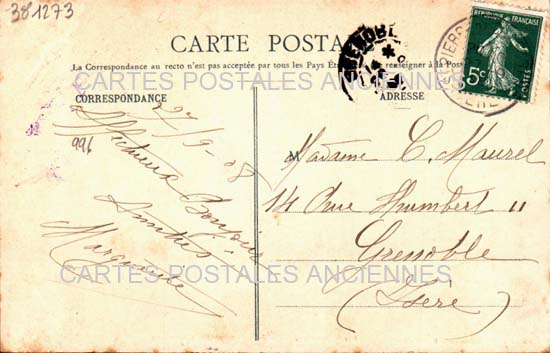 381273
CARTE POSTALE
GRENOBLE
REPUBLIQUE FRANÇAISE
5c
POSTES
La Correspondance au recto n'est pas acceptée par tous les Pays renseigner à la Poste
CARTES POSTALES ANCIENNES
CORRESPONDANCE
ADRESSE
27/9-08
996
Meilleur Bonjour
Amitiés
Marguerite
M
Madame C. Maurel
14 Rue Humbert II
Grenoble
(Isère)
CARTES POSTALES ANCIENNES